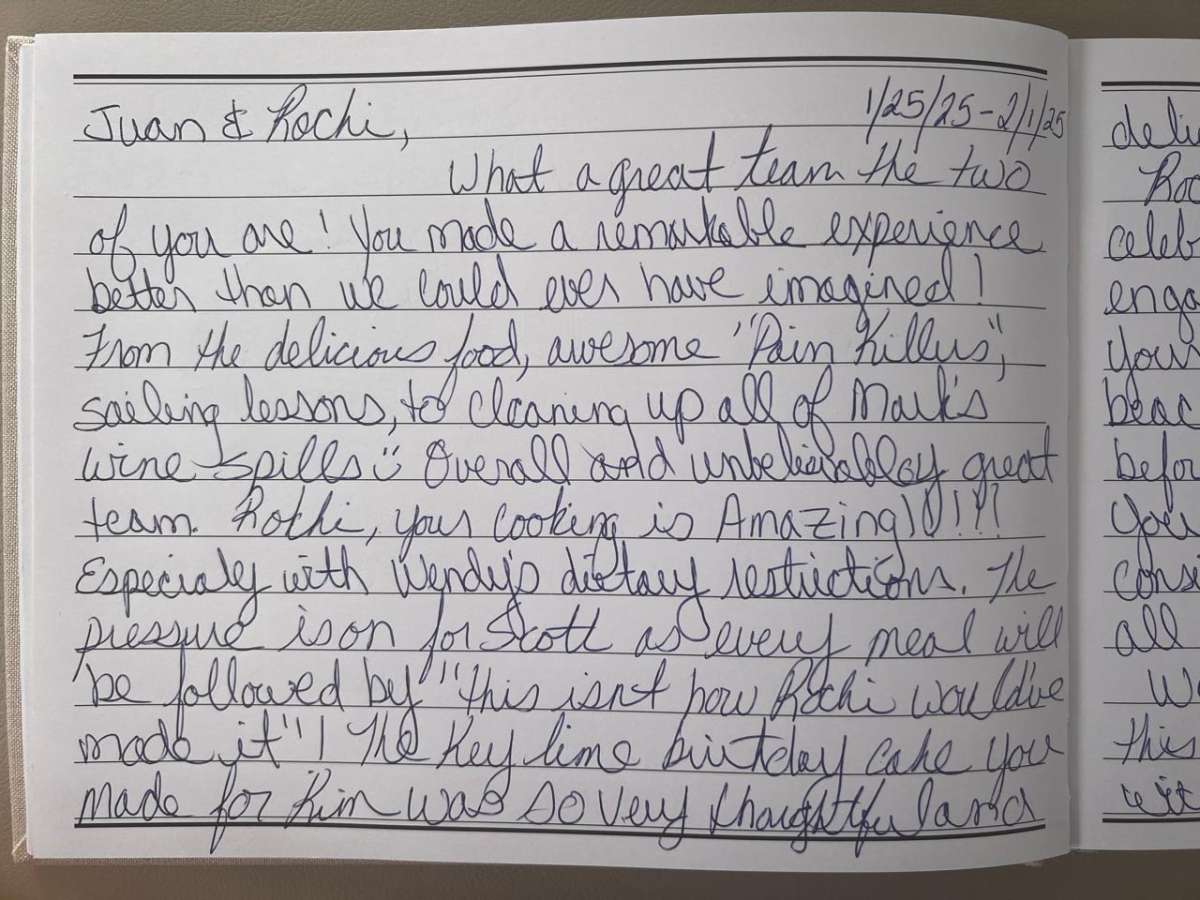 Juan & Rochi,
1/25/25-2/1/25
What a great team the two
of you are! You made a remarkable experience
better than we could ever have imagined!
From the delicious food, awesome "Pain Killers",
sailing lessons, to cleaning up all of Mark's
wine spills :) Overall and unbelievabley great
team. Rochi, your cooking is Amazing!!!!!
Especialy with Wendy's dietary restrictions. The
pressure is on for Scott as every meal will
be followed by "this isnt how Rochi would've
made it"! The Key lime birtday cake you
made for Kim was so very thoughtful and
deli
Roc
celeb
enga
your
beac
befor
you
cons
all
We
this
wit